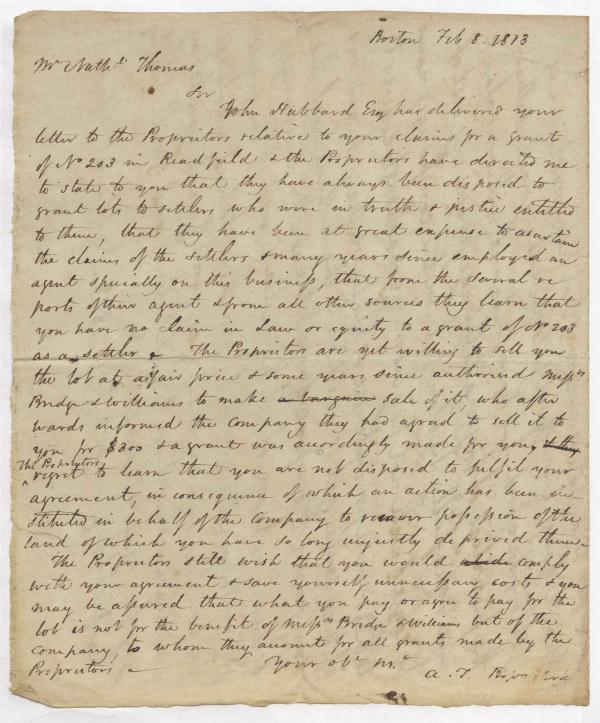 Boston Feb 8. 1813
Mr Nathl Thomas
Sir
John Hubbard Esq has delivered your
letter to the Proprietors relative to your claims for a grant
of No 203 in Readfield & the Proprietors have directed me
to state to you that they have always been disposed to
grant lots to setlers who were in truth & justice entitled
to them, that they have been at great expense to ascertain
the claims of the setlers & many years since employed an
agent specially on this business, that from the several re
ports of their agent & from all other sources they learn that
you have no claim in Law or equity to a grant of No 203
as a setler. The Proprietors are yet willing to sell you
the lot at a fair price & some years since authorised Messrs
Bridge & Williams to make a bargain sale of it, who after
wards informed the company they had agreed to sell it to
you for $300 & a grant was accordingly made for you, & they
The Proprietors
regret to learn that you are not disposed to fulfil your
agreement, in consequence of which an action has been in-
stituted in behalf of the Company to recover possession of the
land of which you have so long unjustly deprived them—
The Proprietors still wish that you would abide comply
with your agreement & save yourself unnecessary costs & you
may be assured that what you pay or agree to pay for the
lot is not for the benefit of Messrs Bridge & Williams but of the
company, to whom they account for all grants made by the
Proprietors —
Your obt Sert
A. T. Props